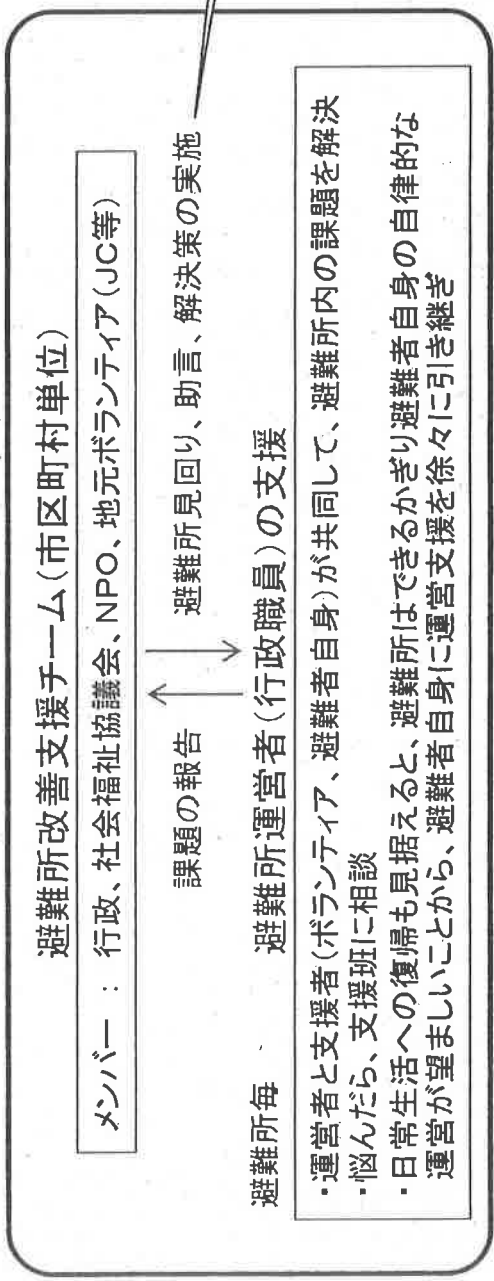 避難所改善支援チーム(市区町村単位)
メンバー : 行政、社会福祉協議会、NPO、地元ボランティア(JC等)
課題の報告
避難所見回り、助言、解決策の実施
避難所毎
避難所運営者(行政職員)の支援
・運営者と支援者(ボランティア、避難者自身)が共同して、避難所内の課題を解決
・悩んだら、支援班に相談
・日常生活への復帰も見据えると、避難所はできるかぎり避難者自身の自律的な
運営が望ましいことから、避難者自身に運営支援を徐々に引き継ぎ